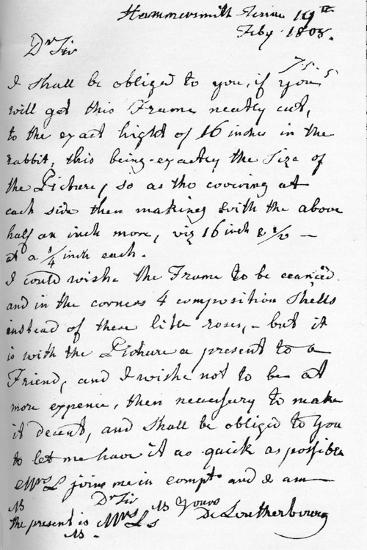 Hammersmith Terrace 19th
Feby 1805.
Dr Sir
I shall be obliged to you, if you
will get this Frame neatly cut,
to the exact hight of 16 inches in the
rabbit, this being exactly the Size of
the Picture, so as the covering at
each side then making with the above
half an inch more, viz 16 inch & 1/2 —
at a 1/4 inch each.
I could wishe the Frame to be
and in the corners 4 composition Shells
instead of these litle roses, - but it
is with the Picture a present to a
Friend, and I wishe not to be at
more expence, then necessary to make
it decent, and shall be obliged to you
to let me have it as quick as possible
Mrs L joins me in compts and I am
Dr Sir Yours
NB
the present is Mrs Ls De Loutherbourg